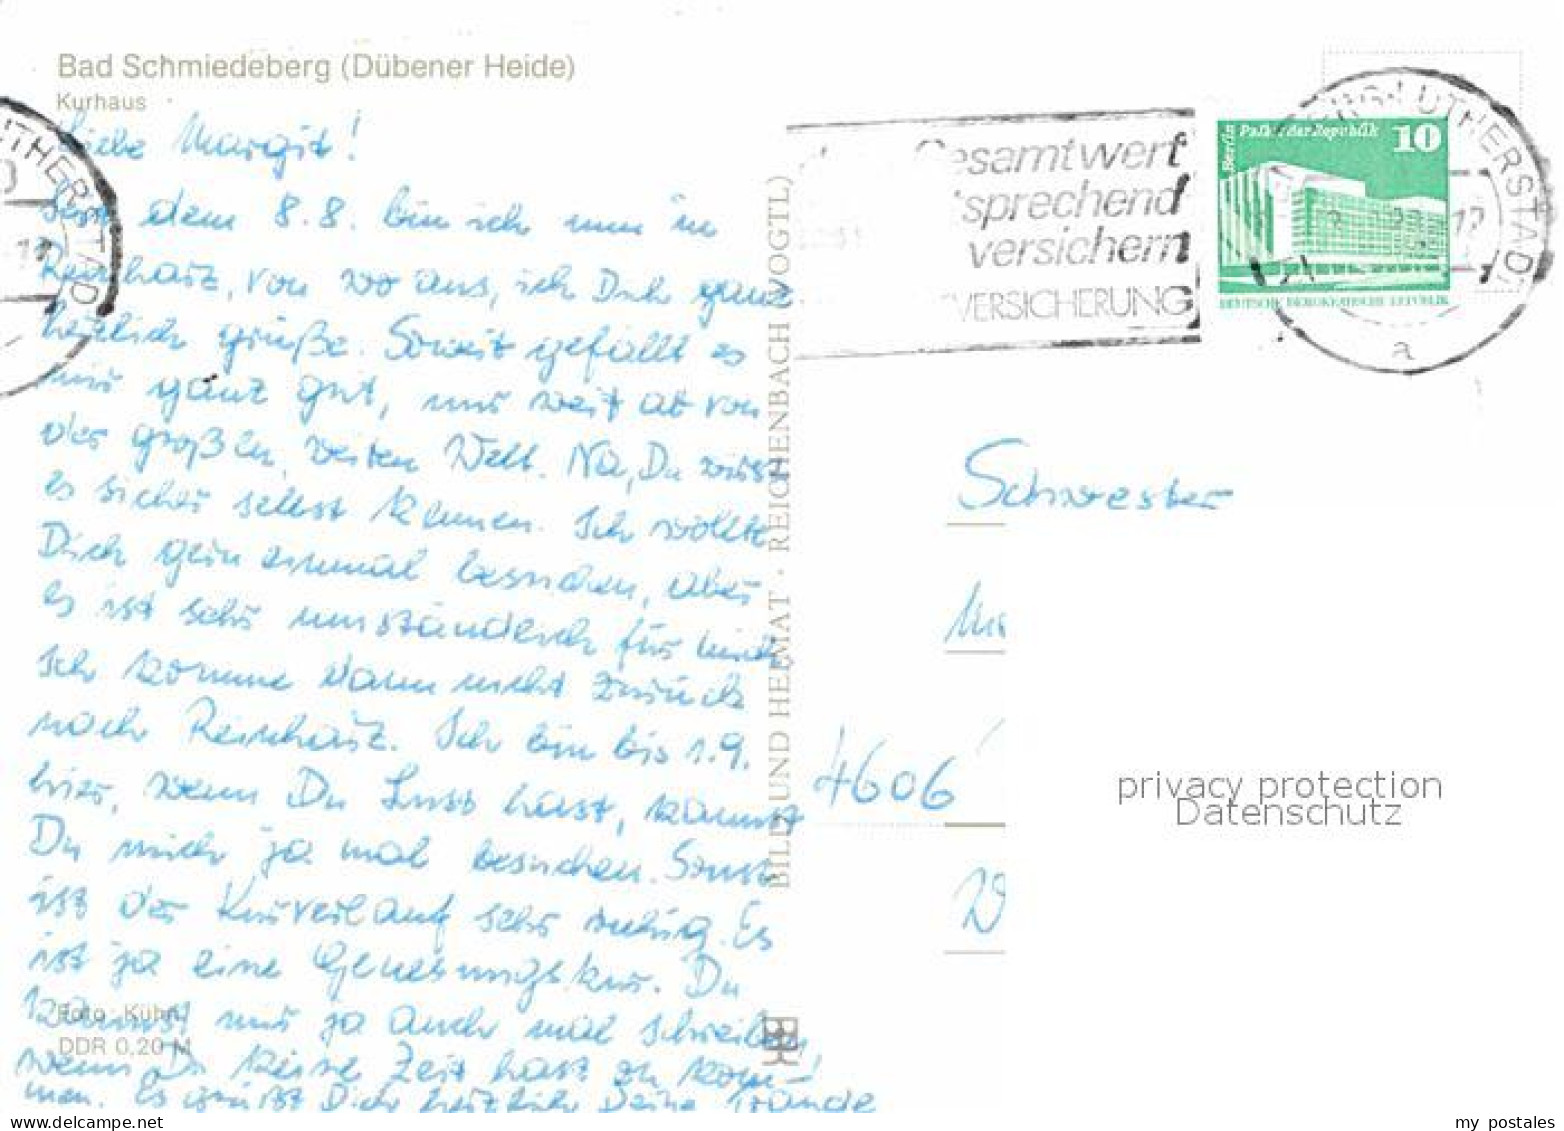 Bad Schmiedeberg (Dübener Heide)
Kurhaus
Liebe Margit!
Seit dem 8.8. bin ich nun in
Reinharz, von wo aus, ich Dich ganz
herzlich grüße. Soweit gefällt es
mir ganz gut, nur weit ab von
der großen, weiten Welt. Na, Du wirst
es sicher selbst kennen. Ich wollte
Dich gern einmal besuchen, aber
es ist sehr umständlich für mich
Ich komme dann nicht zurück
nach Reinharz. Ich bin bis 1.9.
hier, wenn Du Lust hast, kannst
Du mich ja mal besuchen. Sonst
ist der Kurverlauf sehr ruhig. Es
ist ja eine Genesungskur. Du
kannst mir ja auch mal schreiben,
wenn Du keine Zeit hast zu kom-
men. Es grüßt Dich herzlich Deine
Foto: Kühn
DDR 0,20 M
BILD UND HEIMAT · REICHENBACH (VOGTL)
Gesamtwert
sprechend
versichern
VERSICHERUNG
LUTHERSTADT
a
Berlin Palast der Republik 10
DEUTSCHE DEMOKRATISCHE REPUBLIK
UTHERSTAD
Schwester
4606
privacy protection
Datenschutz
my postales